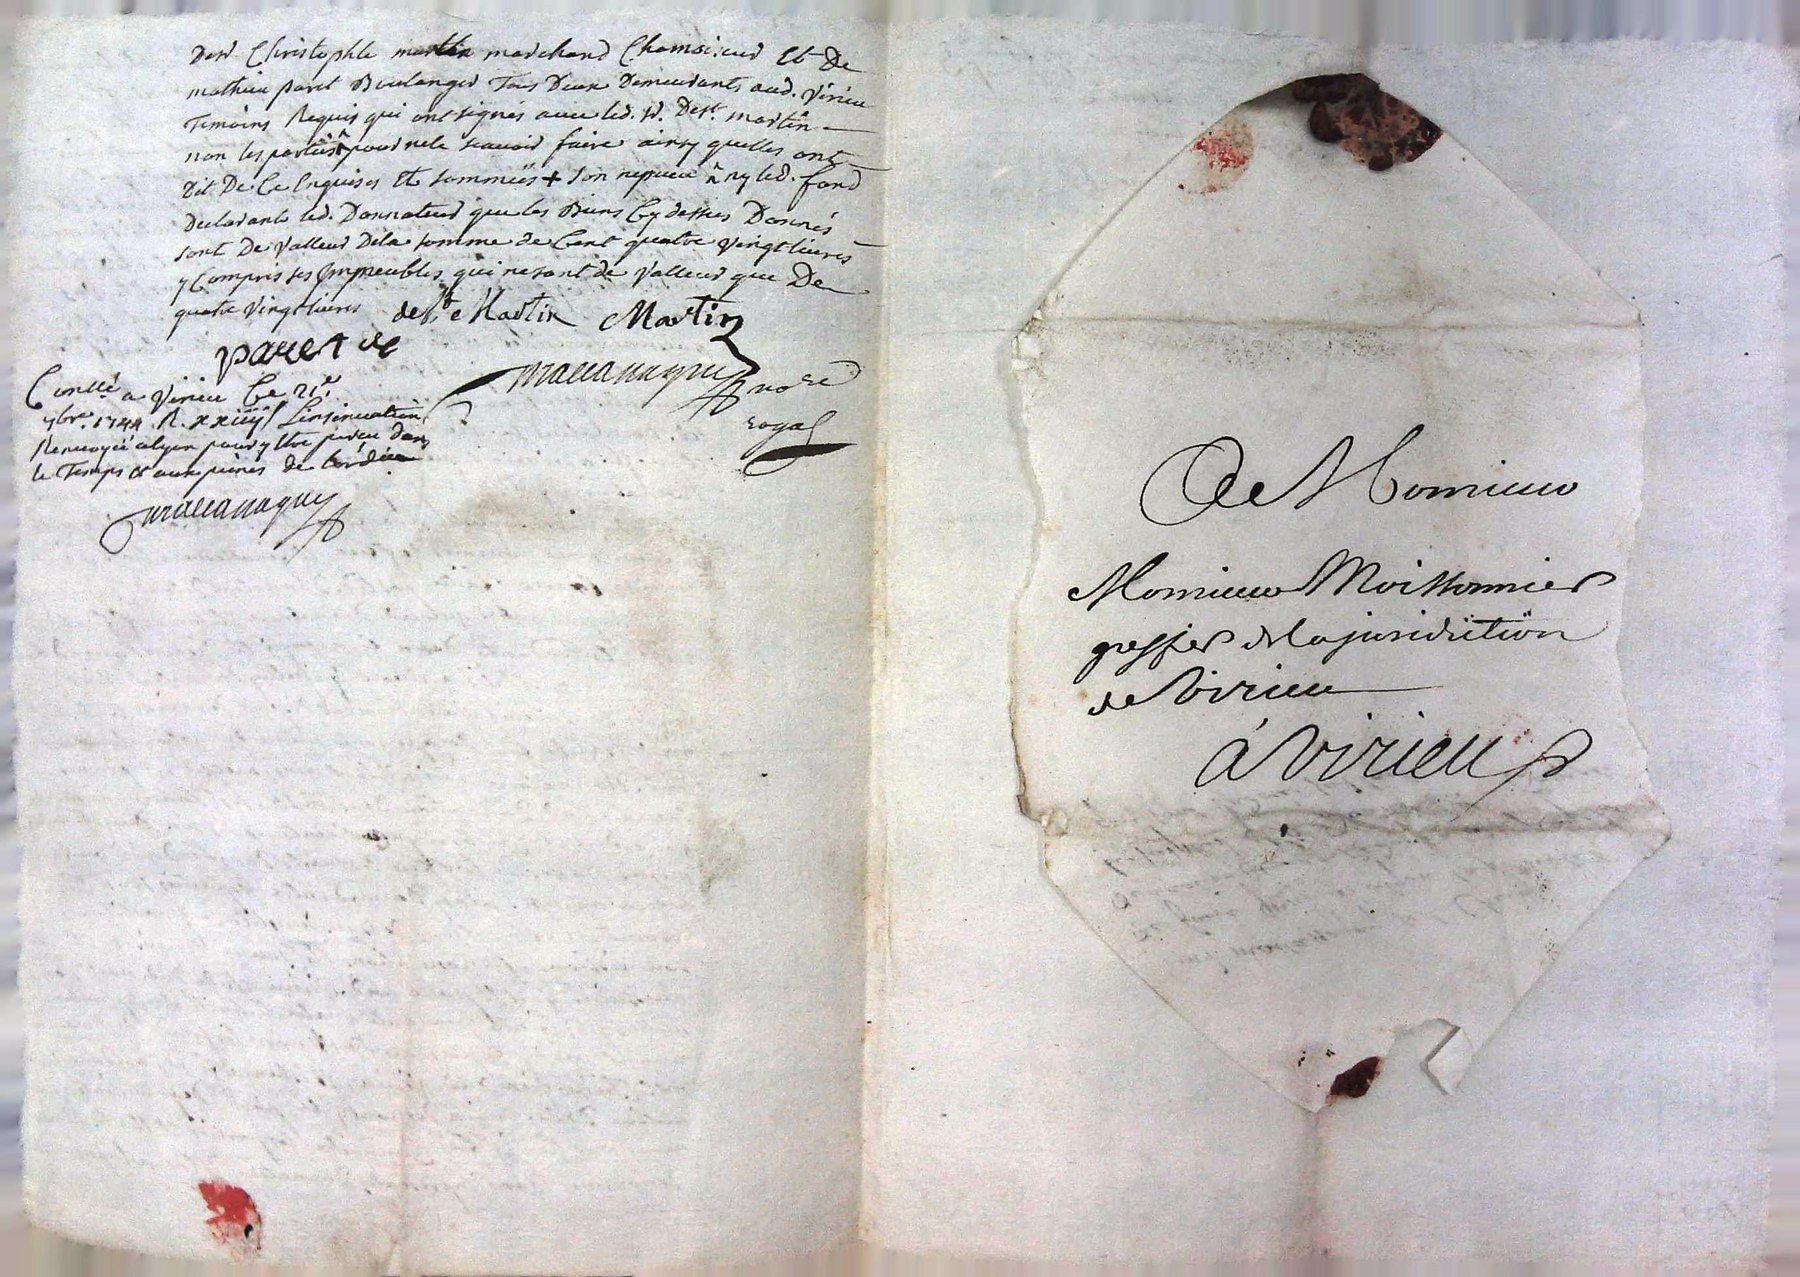 Desd Christophle martin marchand Chamoiseur Et De
mathieu paret Boulanger Tous Deux Demeurants aud. Virieu
Temoins Requis qui ont signés avec led. sr. Dest. martin
non les parties pour ne le scavoir faire ainsy quelles ont
Dit De Ce Enquises Et sommeés + son nepveu ny led. fond
Declarants led. Donnateur que les Biens Cy dessus Donnés
sont De Valleur Dela somme de Cent quatre vingt livres
y Compris ses Immeubles qui ne sont de Valleur que De
quatre Vingt livres
dest Martin Martin
paret
mallanaguy no.re
royal
Conllé a Virieu Ce 21e
7bre. 1744 R. xxiiij s L'insinuation
Renvoyée pour y Etre pveu dans
le Temps Et aux peines de
mallanaguy
A Monsieur
Monsieur Moissonnier
greffier de la juridiction
de Virieu
á Virieu